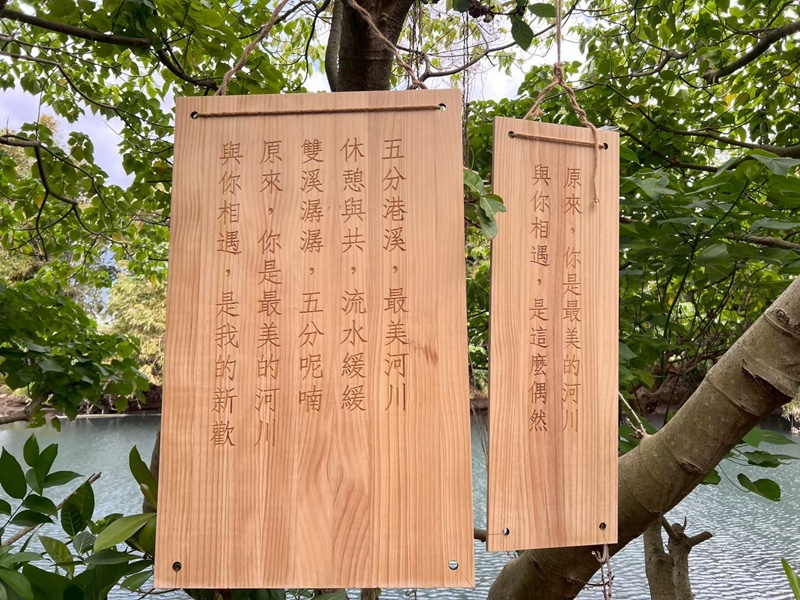 五分港溪，最美河川
休憩與共，流水緩緩
雙溪潺潺，五分呢喃
原來，你是最美的河川
與你相遇，是我的新歡
原來，你是最美的河川
與你相遇，是這麼偶然